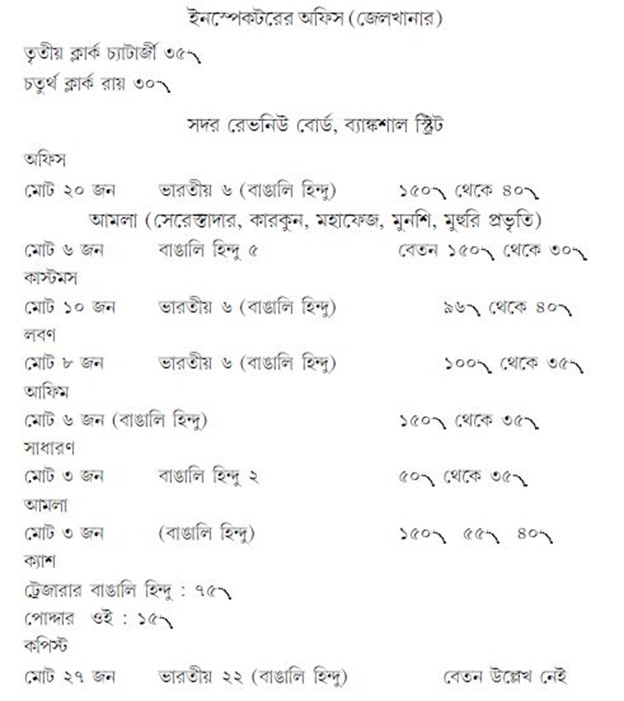 ইনস্পেকটরের অফিস (জেলখানার)
তৃতীয় ক্লার্ক চ্যাটার্জী ৩৫৲
চতুর্থ ক্লার্ক রায় ৩০৲
সদর রেভনিউ বোর্ড, ব্যাঙ্কশাল স্ট্রিট
অফিস
মোট ২০ জন ভারতীয় ৬ (বাঙালি হিন্দু) ১৫০৲ থেকে ৪০৲
আমলা (সেরেস্তাদার, কারকুন, মহাফেজ, মুনশি, মুহুরি প্রভৃতি)
মোট ৬ জন বাঙালি হিন্দু ৫ বেতন ১৫০৲ থেকে ৩০৲
কাস্টমস
মোট ১০ জন ভারতীয় ৬ (বাঙালি হিন্দু) ৯৬৲ থেকে ৪০৲
লবণ
মোট ৮ জন ভারতীয় ৬ (বাঙালি হিন্দু) ১০০৲ থেকে ৩৫৲
আফিম
মোট ৬ জন (বাঙালি হিন্দু) ১৫০৲ থেকে ৩৫৲
সাধারণ
মোট ৩ জন বাঙালি হিন্দু ২ ৫০৲ থেকে ৩৫৲
আমলা
মোট ৩ জন (বাঙালি হিন্দু) ১৫০৲ ৫৫৲ ৪০৲
ক্যাশ
ট্রেজারার বাঙালি হিন্দু : ৭৫৲
পোদ্দার ওই : ১৫৲
কপিস্ট
মোট ২৭ জন ভারতীয় ২২ (বাঙালি হিন্দু) বেতন উল্লেখ নেই